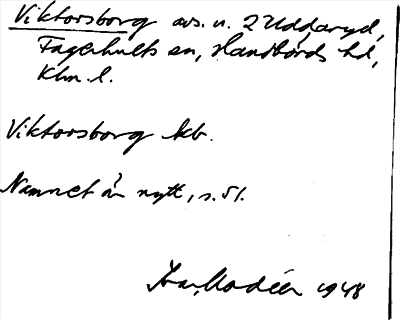 Viktorsborg avs. u. 2 Uddaryd,
Fagerhults sn, Handbörds hd,
Klm. l.
Viktorsborg kb.
Namnet är nytt, s. 51.
Ivar Modéer 1948